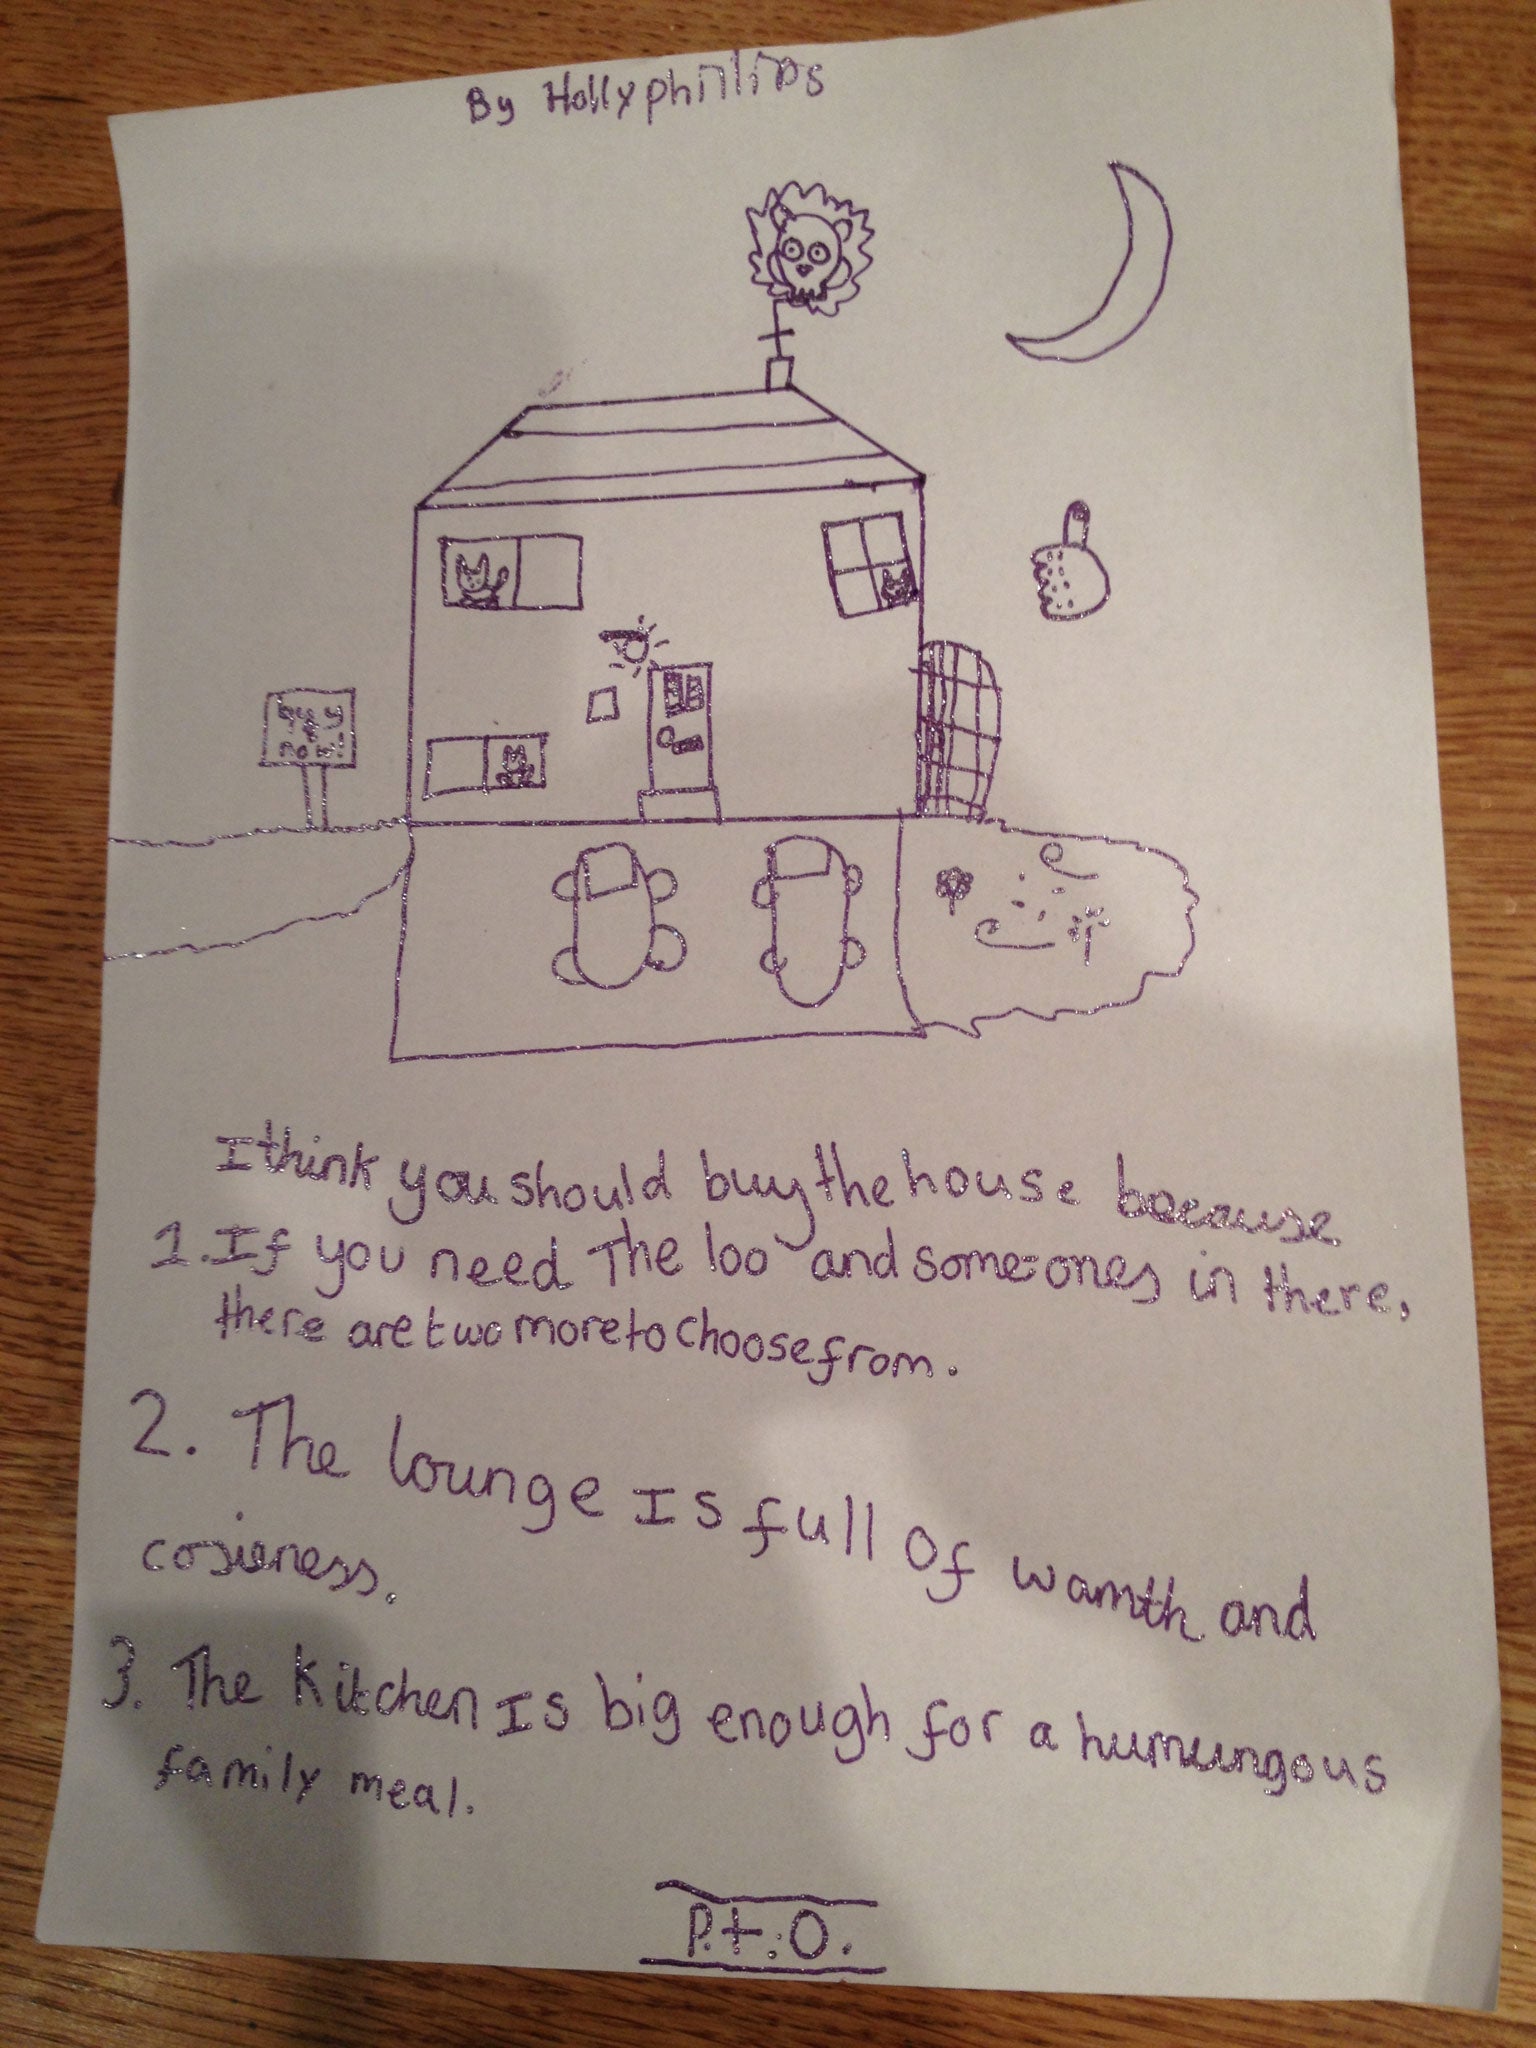 By Holly phillips
buy
now!
I think you should buy the house because
1. If you need The loo and someones in there,
there are two more to choose from.
2. The lounge Is full of wamth and
cosieness.
3. The kitchen Is big enough for a humungous
family meal.
P.t.O.